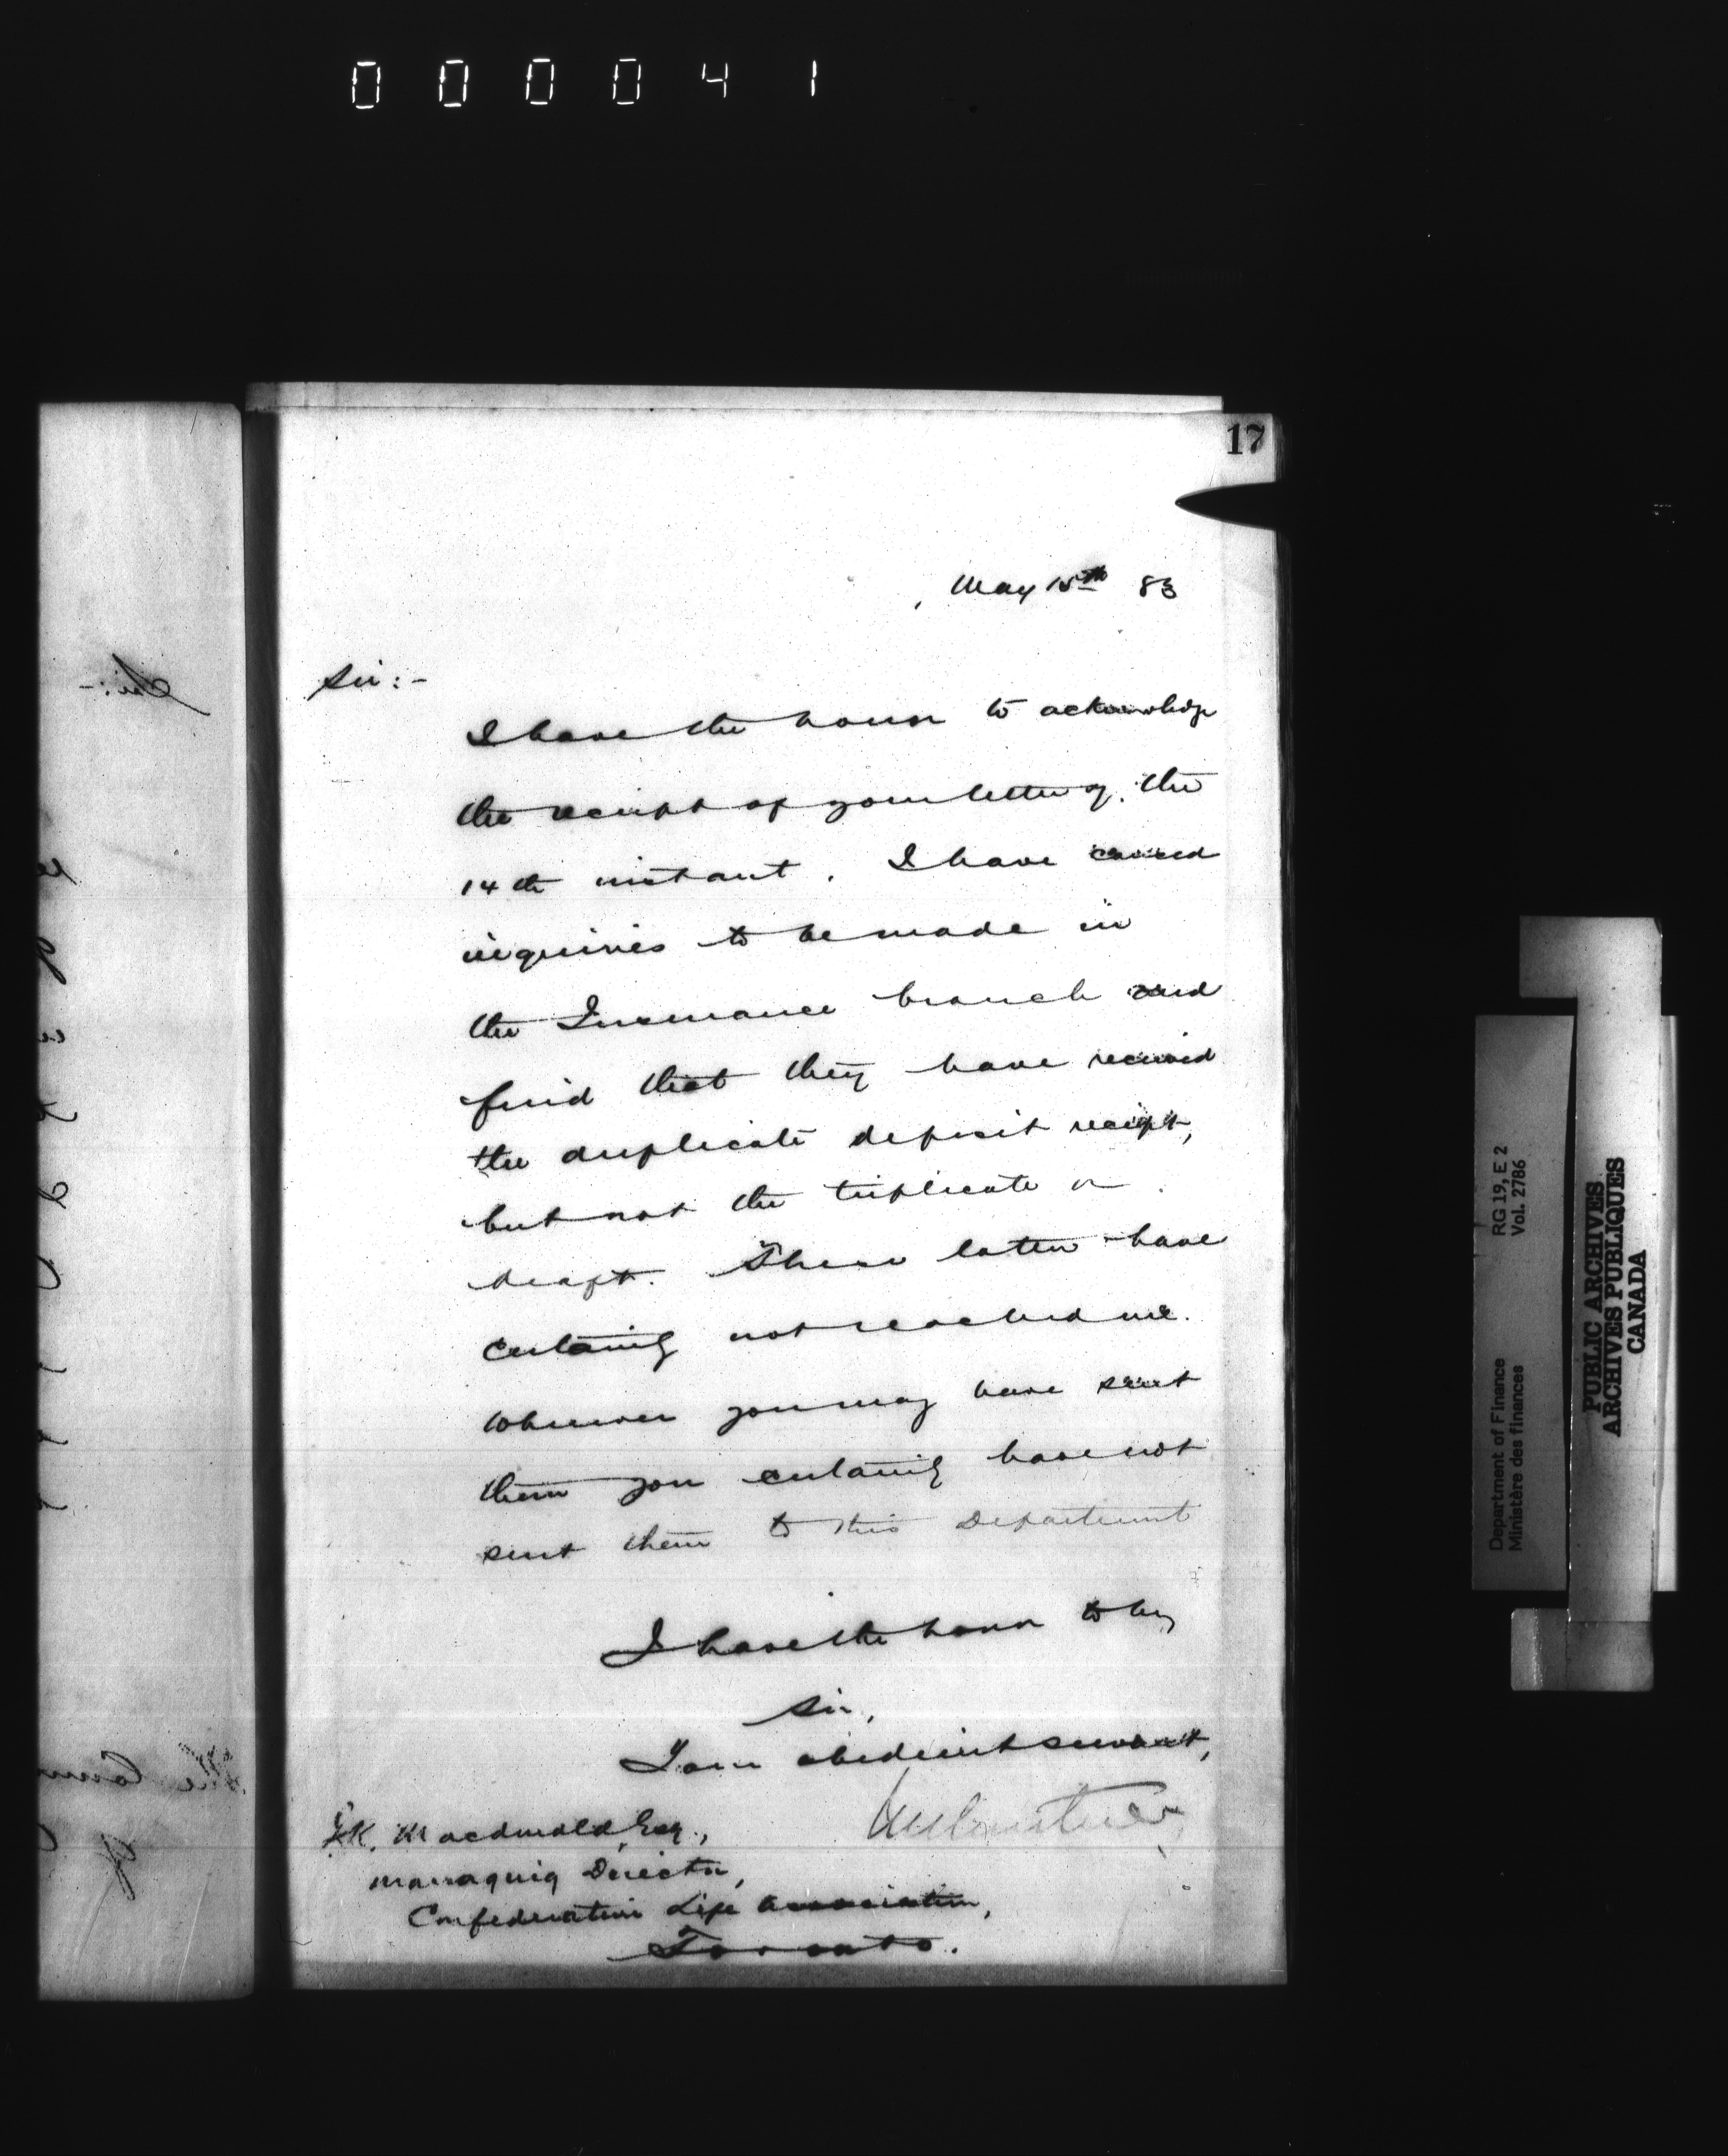 000041
17
May 15th 83
Sir:-
I have the honor to acknowledge
the receipt of your letter of the
14th instant. I have caused
inquiries to be made in
the Insurance branch and
find that they have received
the duplicate deposit receipt,
but not the triplicate or
draft. These latter have
certainly not reached me.
Wherever you may have sent
them you certainly have not
sent them to this Department
I have the honor to be,
Sir,
I am obedient servant,
J.K. Macdonald, Esq.,
Managing Director,
Confederation Life Association,
Toronto.
RG 19, E 2
Vol. 2786
Department of Finance
Ministère des finances
PUBLIC ARCHIVES
ARCHIVES PUBLIQUES
CANADA